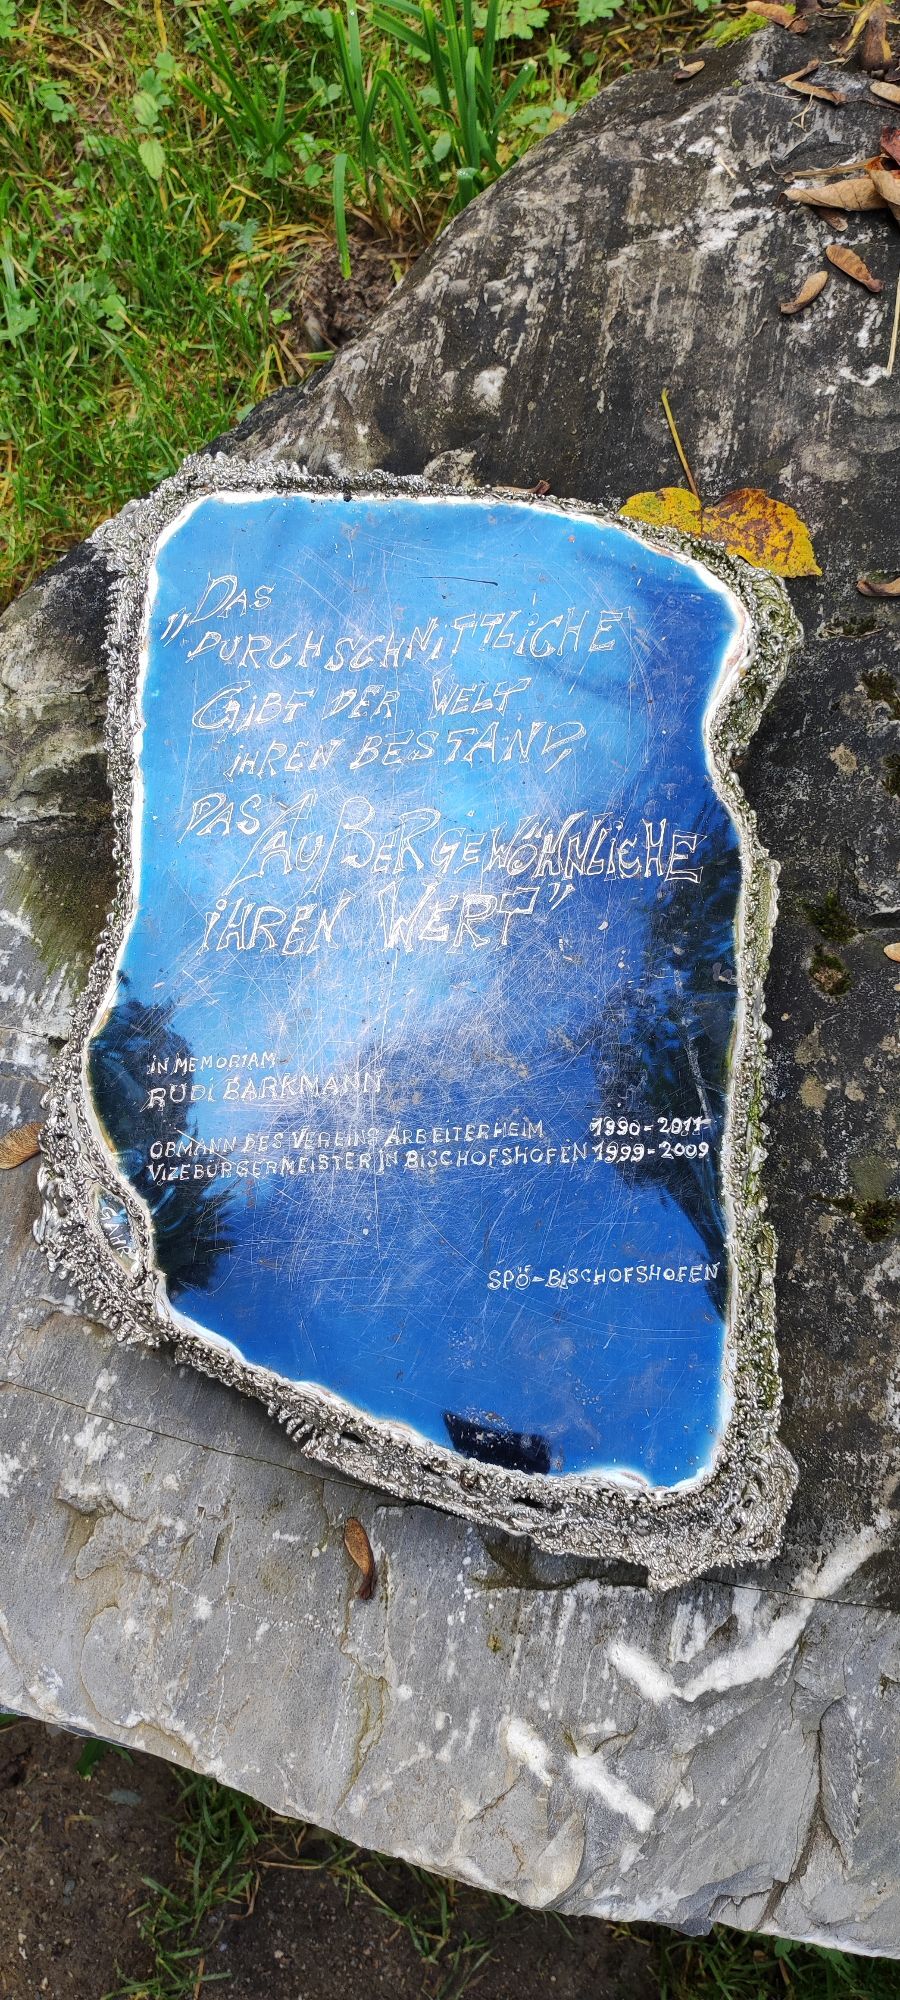 „DAS
DURCHSCHNITTLICHE
GIBT DER WELT
IHREN BESTAND,
DAS AUßERGEWÖHNLICHE
IHREN WERT”
IN MEMORIAM
RUDI BARKMANN
OBMANN DES VEREINS ARBEITERHEIM 1990-2011
VIZEBÜRGERMEISTER IN BISCHOFSHOFEN 1999-2009
SPÖ-BISCHOFSHOFEN